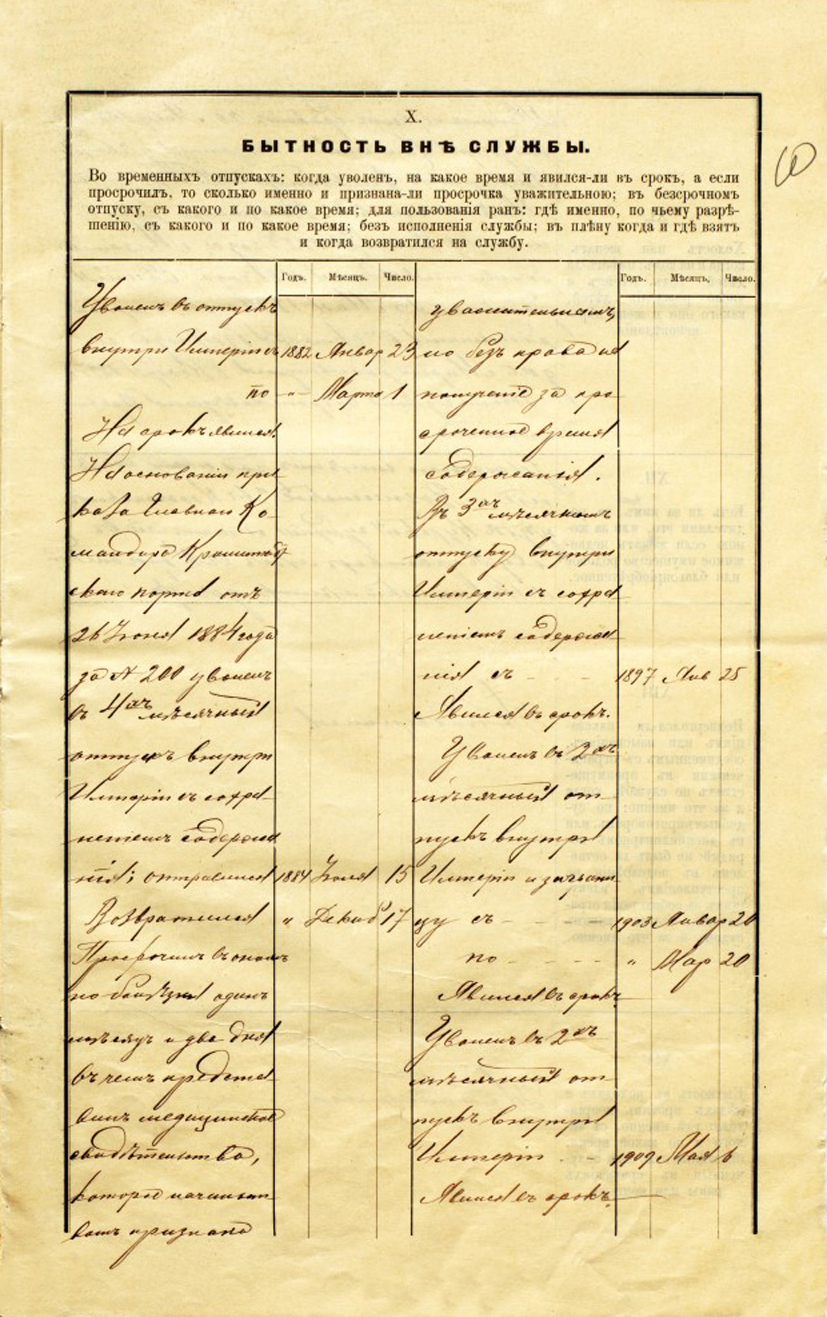 X.
БЫТНОСТЬ ВНѢ СЛУЖБЫ.
Во временныхъ отпускахъ: когда уволенъ, на какое время и явился-ли въ срокъ, а если
просрочилъ, то сколько именно и признана-ли просрочка уважительною; въ безсрочномъ
отпуску, съ какого и по какое время; для пользованія ранъ: гдѣ именно, по чьему разрѣ-
шенію, съ какого и по какое время; безъ исполненія службы; въ плѣну когда и гдѣ взятъ
и когда возвратился на службу.
Годъ. Мѣсяцъ. Число.
Уволенъ въ отпускъ
внутри Имперіи съ 1882 Январ 23
по „ Марта 1
На срокъ явился.
На основаніи при
каза Главнаго Ко
мандира Кронштадт
скаго порта отъ
26 Іюня 1884 года
за № 200 уволенъ
въ 4хъ мѣсячный
отпускъ внутри
Имперіи съ сохра
неніемъ содержа
нія; отправился 1884 Іюля 15
Возвратился „ Декаб 17
Просрочилъ въ ономъ
по болѣзни одинъ
мѣсяцъ и два дня
въ чемъ представ
вилъ медицинское
свидѣтельство,
которое начальст
вомъ признано
Годъ. Мѣсяцъ. Число.
уважительнымъ,
но безъ права на
полученіе за про
сроченное время
содержанія.
Въ 3хъ мѣсячномъ
отпуску внутри
Имперіи съ сохра
неніемъ содержа
нія съ - - 1897 Янв 25
Явился въ срокъ.
Уволенъ въ 2хъ
мѣсячный от
пускъ внутри
Имперіи и заграни
цу съ - - - - 1903 Январ 20
по - - - - „ Мар 20
Явился въ срокъ
Уволенъ въ 2хъ
мѣсячный от
пускъ внутри
Имперіи - - 1909 Мая 6
Явился въ срокъ.